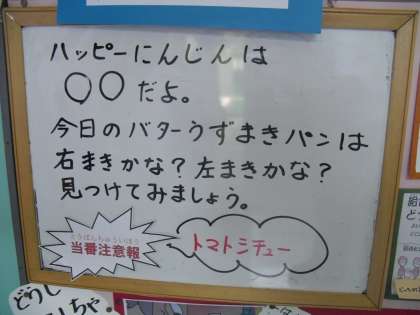 ハッピーにんじんは
○○だよ。
今日のバターうずまきパンは
右まきかな?左まきかな?
見つけてみましょう。
とうばんちゅういほう
当番注意報
トマトシチュー
どうし
ちゃ。